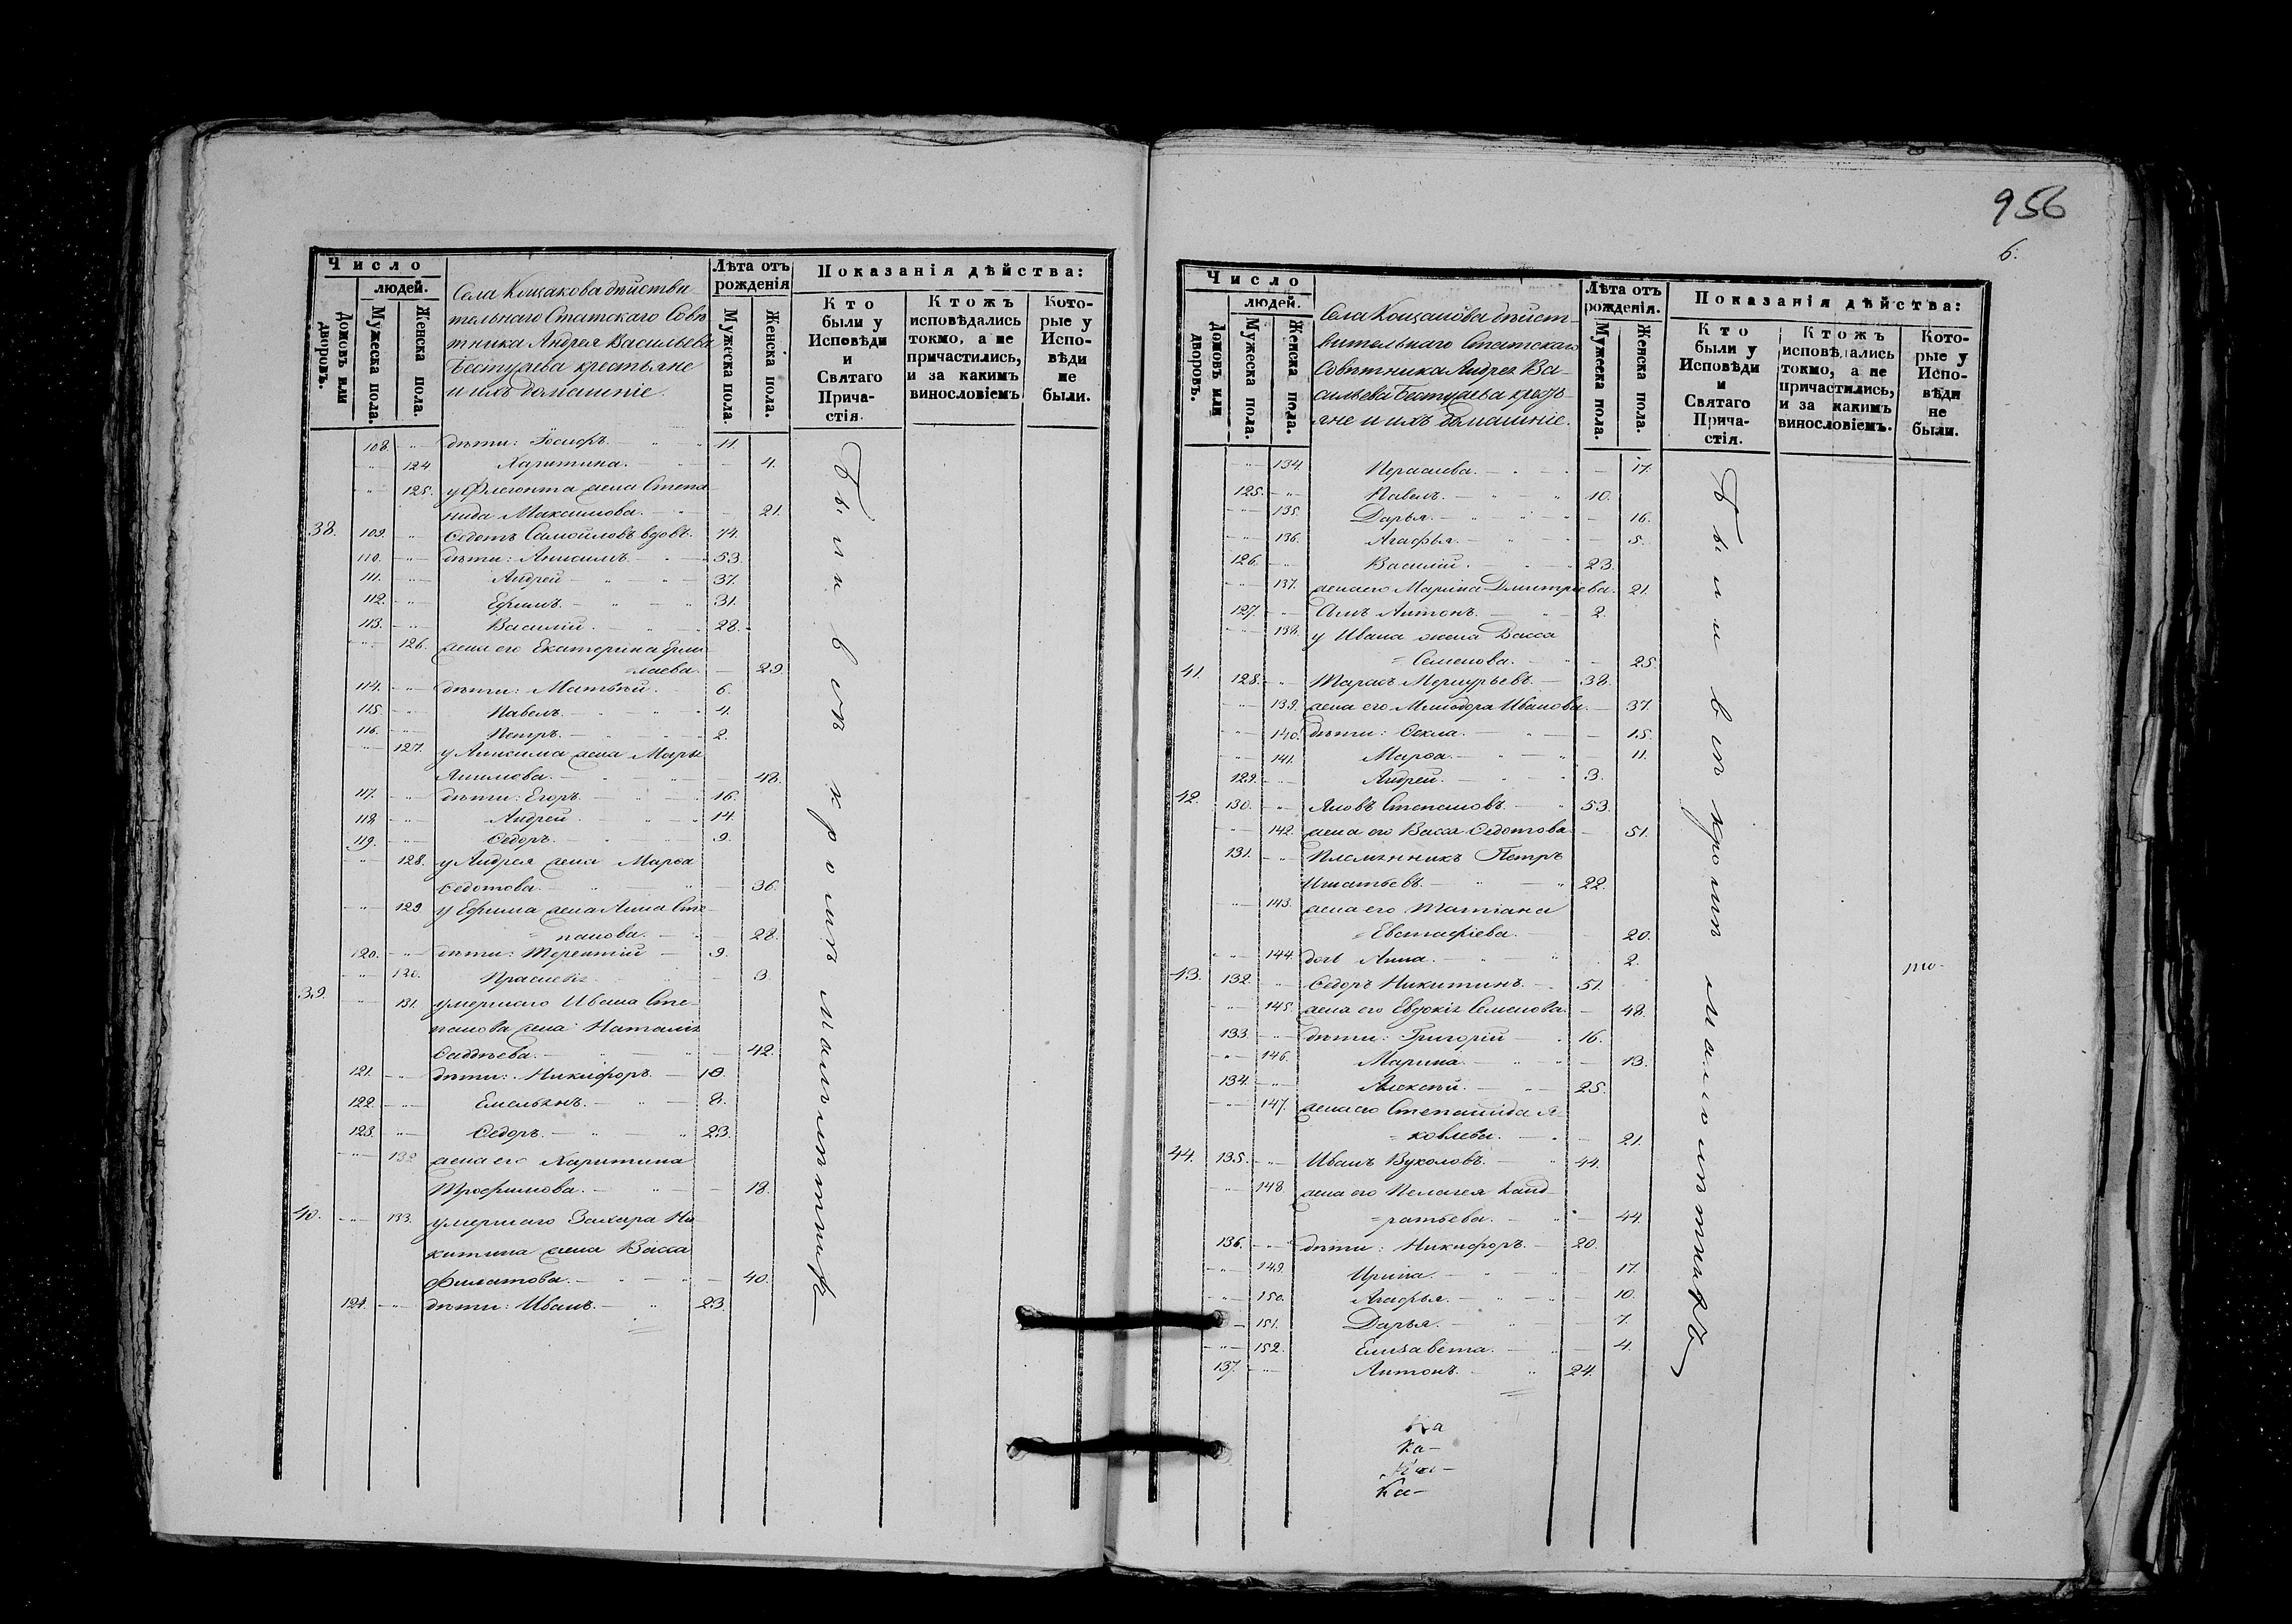 956
6.
Число
людей.
Домовъ или дворовъ.
Мужеска пола.
Женска пола.
Села Кощакова дѣйстви-
тельнаго Статскаго Совѣ-
тника Андрея Васильева
Бестужева крестьяне
и ихъ домашніе.
Лѣта отъ рожденія
Мужеска пола
Женска пола.
Показанія дѣйства:
Кто были у Исповѣди и Святаго Прича-стія.
Ктожъ исповѣдались токмо, а не причастились, и за какимъ винословіемъ
Кото-рые у Испо-вѣди не были.
108. дѣти: Іосифъ. 11.
124. Харитина. 4.
125. у Флегонта жена Степа-
нида Максимова. 21.
38. 109. Ѳедотъ Самойловъ вдовъ. 74.
110. дѣти: Анисимъ 53.
111. Андрей 37.
112. Ефимъ. 31.
113. Василій. 28.
126. жена его Екатерина Ерми-
лаева. 29.
114. дѣти: Матвѣй. 6.
115. Павелъ. 4.
116. Петръ. 2.
127. у Анисима жена Марья
Якимова. 48.
117. дѣти: Егоръ. 16.
118. Андрей. 14.
119. Ѳедоръ. 9.
128. у Андрея жена Марѳа
Ѳедотова. 36.
129. у Ефима жена Анна Сте-
панова. 28.
120. дѣти: Терентій 9.
130. 3.
39. 131. умершаго Ивана Сте-
панова жена Наталія
Ѳаддѣева. 42.
121. дѣти: Никифоръ. 10.
122. Емельянъ. 8.
123. Ѳедоръ. 23.
132. жена его Харитина
Трофимова. 18.
40. 133. умершаго Захара Ни-
китина жена Васса
Филатова. 40.
124. дѣти: Иванъ. 23.
Были всѣ кромѣ малолѣтныхъ
Число
людей.
Домовъ или дворовъ.
Мужеска пола.
Женска пола.
Села Кощакова дѣйст-
вительнаго Статскаго
Совѣтника Андрея Ва-
сильева Бестужева кресть-
яне и ихъ домашніе.
Лѣта отъ рожденія.
Мужеска пола.
Женска пола.
Показанія дѣйства:
Кто были у Исповѣди и Святаго Прича-стія.
Ктожъ исповѣдались токмо, а не причастились, и за какимъ винословіемъ.
Кото-рые у Испо-вѣди не были.
134. 17.
125. Павелъ. 10.
135. Дарья. 16.
136. Агафья. 5.
126. Василій. 23.
137. жена его Марина Дмитріева. 21.
127. Сынъ Антонъ. 2.
138. у Ивана жена Васса
Семенова. 25.
41. 128. Тарасъ Меркурьевъ. 38.
139. жена его Минодора Иванова. 37.
140. дѣти: Ѳекла. 15.
141. Марѳа. 11.
129. Андрей. 3.
42. 130. Яковъ Степановъ. 53.
142. жена его Васса Ѳедотова. 51.
131. Племянникъ Петръ
Игнатьевъ. 22.
143. жена его Татіана
Евстафіева. 20.
144. дочь Анна. 2.
43. 132. Ѳедоръ Никитинъ. 51.
145. жена его Евдокія Семенова. 48.
133. дѣти: Григорій 16.
146. Марина. 13.
134. Алексѣй. 25.
147. жена его Степанида Я-
ковлева. 21.
44. 135. Иванъ Вуколовъ. 44.
148. жена его ПелагеяКанд-
ратьева. 44.
136. дѣти: Никифоръ. 20.
149. Ирина. 17.
150. Агафья. 10.
151. Дарья. 7.
152. Елизавета. 4.
137. Антонъ. 24.
Были всѣ кромѣ малолѣтныхъ
Ка-
Ка-